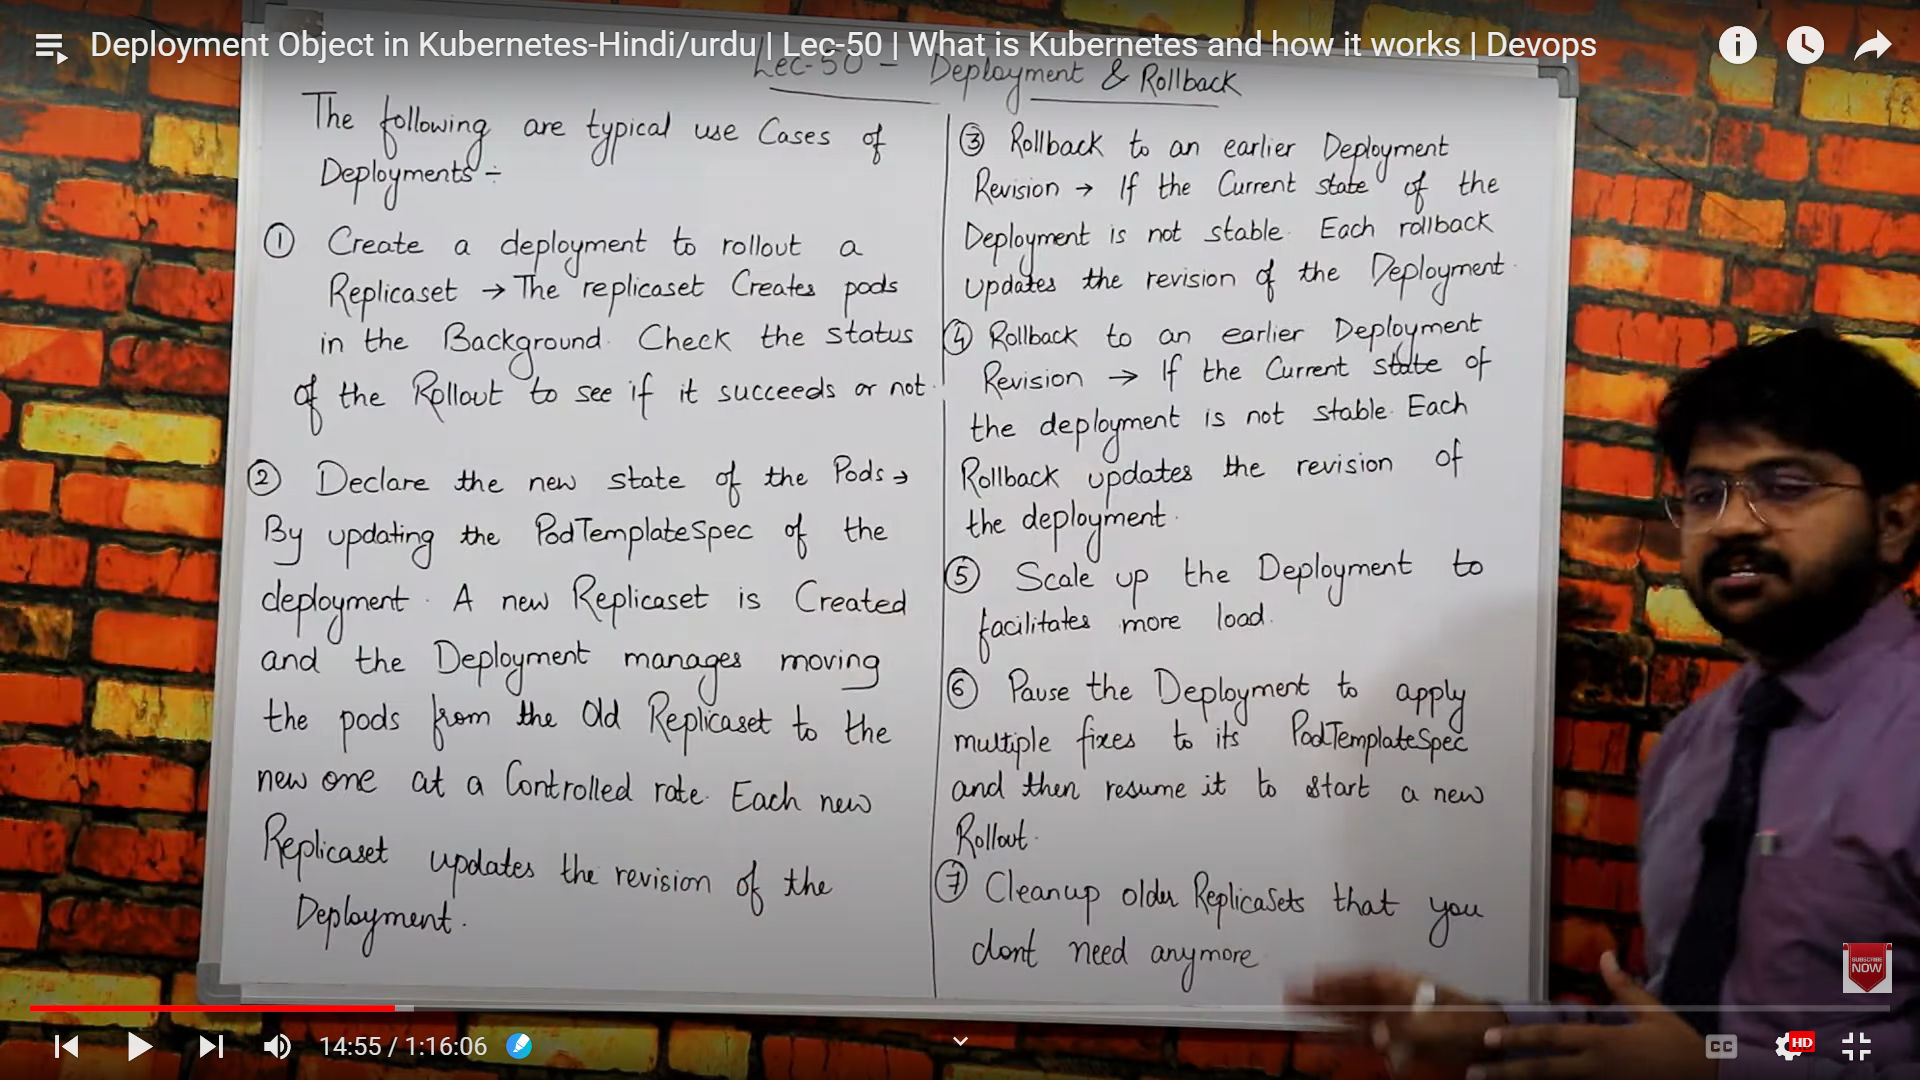 Deployment Object in Kubernetes-Hindi/urdu | Lec-50 | What is Kubernetes and how it works | Devops
Lec-50 - Deployment & Rollback
The following are typical use Cases of
Deployments :-
① Create a deployment to rollout a
Replicaset → The replicaset Creates pods
in the Background. Check the status
of the Rollout to see if it succeeds or not.
② Declare the new state of the Pods →
By updating the PodTemplateSpec of the
deployment. A new Replicaset is Created
and the Deployment manages moving
the pods from the Old Replicaset to the
new one at a Controlled rate. Each new
Replicaset updates the revision of the
Deployment.
③ Rollback to an earlier Deployment
Revision → If the Current state of the
Deployment is not stable. Each rollback
updates the revision of the Deployment.
④ Rollback to an earlier Deployment
Revision → If the Current state of
the deployment is not stable. Each
Rollback updates the revision of
the deployment.
⑤ Scale up the Deployment to
facilitates more load.
⑥ Pause the Deployment to apply
multiple fixes to its PodTemplateSpec
and then resume it to start a new
Rollout.
⑦ Cleanup older ReplicaSets that you
dont need anymore
SUBSCRIBE
NOW
14:55 / 1:16:06
CC
HD